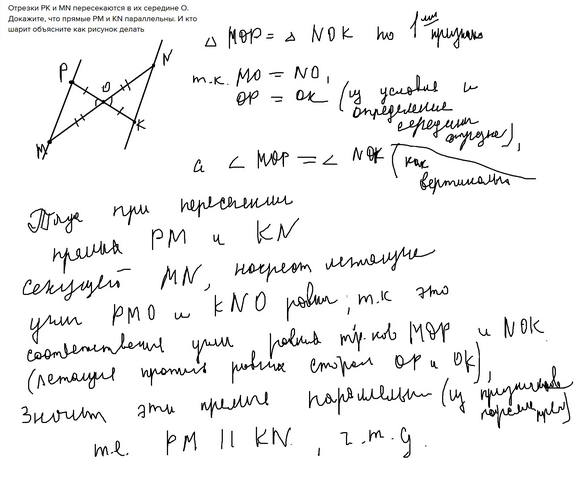 Отрезки РК и MN пересекаются в их середине О.
Докажите, что прямые РМ и KN параллельны. И кто
шарит объясните как рисунок делать
P
N
O
K
M
△ MOP = △ NOK по 1ому признаку
т.к. MO = NO,
OP = OK (из условия и
определение
середины
отрезка),
а ∠ MOP = ∠ NOK (как
вертикальные
Тогда при пересечении
прямых PM и KN
секущей MN, накрест лежащие
углы PMO и KNO равны, т.к это
соответственные углы равных тр.ков MOP и NOK
(лежащие против равных сторон OP и OK),
Значит эти прямые параллельны (из признаков
паралл прям)
т.е. PM || KN, ч.т.д.